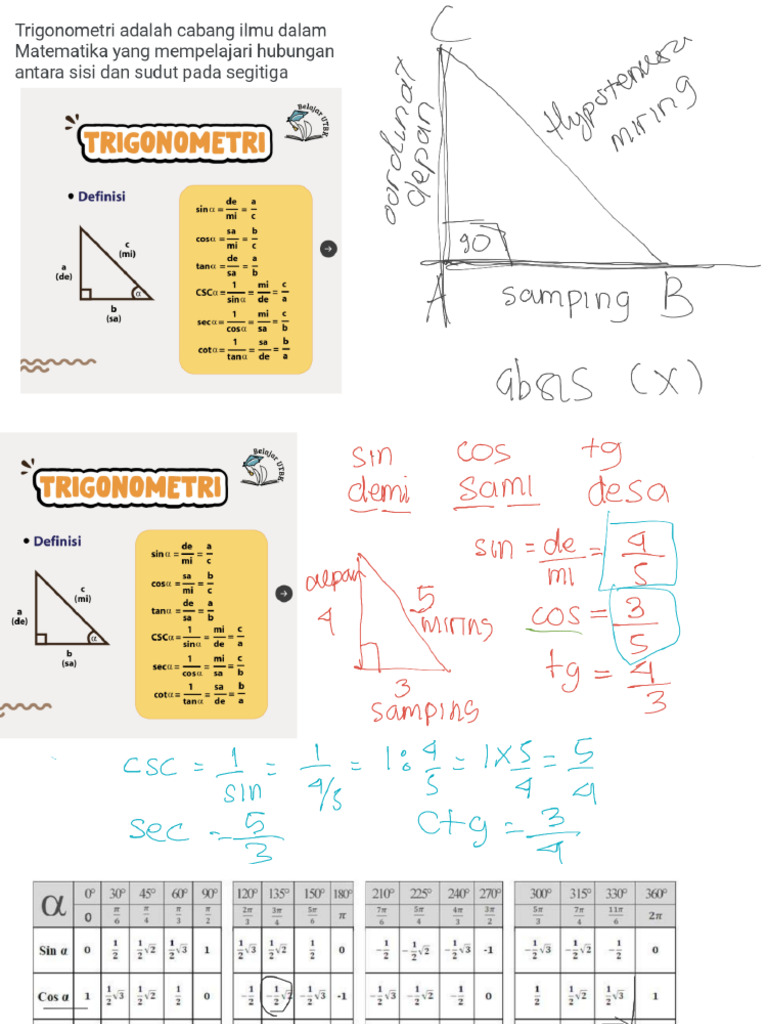 Trigonometri adalah cabang ilmu dalam
Matematika yang mempelajari hubungan
antara sisi dan sudut pada segitiga
Belajar UTBK
TRIGONOMETRI
• Definisi
a
(de)
c
(mi)
α
b
(sa)
sin α = de/mi = a/c
cos α = sa/mi = b/c
tan α = de/sa = a/b
CSC α = 1/sin α = mi/de = c/a
sec α = 1/cos α = mi/sa = c/b
cot α = 1/tan α = sa/de = b/a
C
oordinat
depan
Hypotenusa
miring
90
A
samping
B
absis (x)
Belajar UTBK
TRIGONOMETRI
• Definisi
a
(de)
c
(mi)
α
b
(sa)
sin α = de/mi = a/c
cos α = sa/mi = b/c
tan α = de/sa = a/b
CSC α = 1/sin α = mi/de = c/a
sec α = 1/cos α = mi/sa = c/b
cot α = 1/tan α = sa/de = b/a
sin cos tg
demi sami desa
depan
4
5
miring
3
samping
sin = de/mi = 4/5
cos = 3/5
tg = 4/3
csc = 1/sin = 1/4/5 = 1 : 4/5 = 1 x 5/4 = 5/4
sec = 5/3 ctg = 3/4
α 0° 30° 45° 60° 90° 120° 135° 150° 180° 210° 225° 240° 270° 300° 315° 330° 360°
0 π/6 π/4 π/3 π/2 2π/3 3π/4 5π/6 π 7π/6 5π/4 4π/3 3π/2 5π/3 7π/4 11π/6 2π
Sin α 0 1/2 1/2√2 1/2√3 1 1/2√3 1/2√2 1/2 0 -1/2 -1/2√2 -1/2√3 -1 -1/2√3 -1/2√2 -1/2 0
Cos α 1 1/2√3 1/2√2 1/2 0 -1/2 -1/2√2 -1/2√3 -1 -1/2√3 -1/2√2 -1/2 0 1/2 1/2√2 1/2√3 1